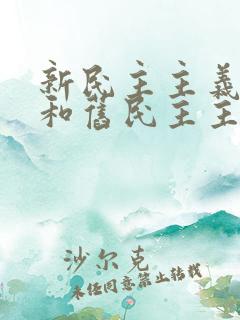 新民主主義
和舊民主主
沙尔克
未经同意禁止转载